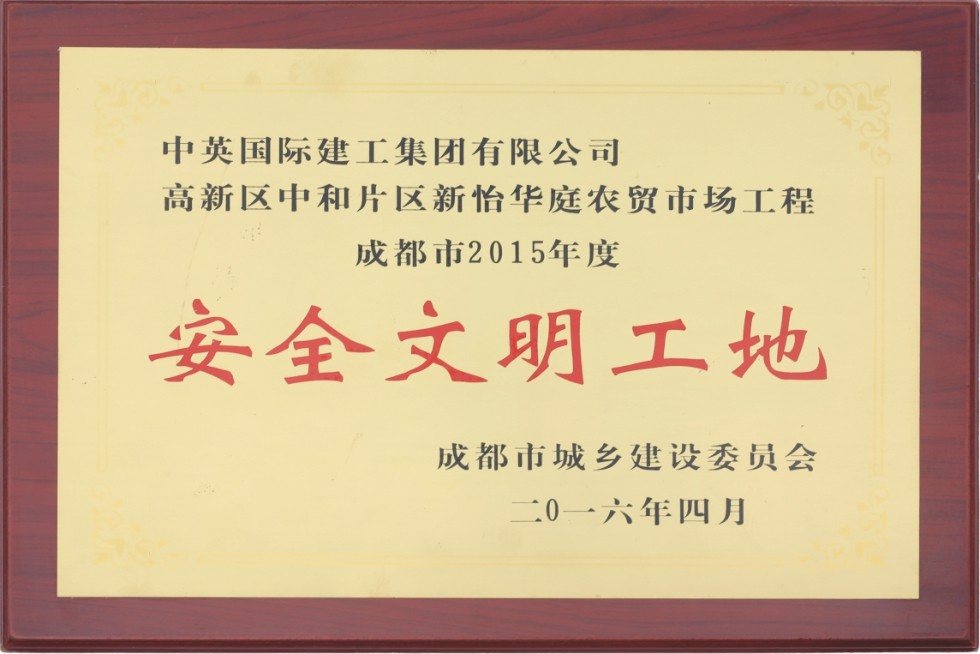 中英国际建工集团有限公司
高新区中和片区新怡华庭农贸市场工程
成都市2015年度
安全文明工地
成都市城乡建设委员会
二0一六年四月